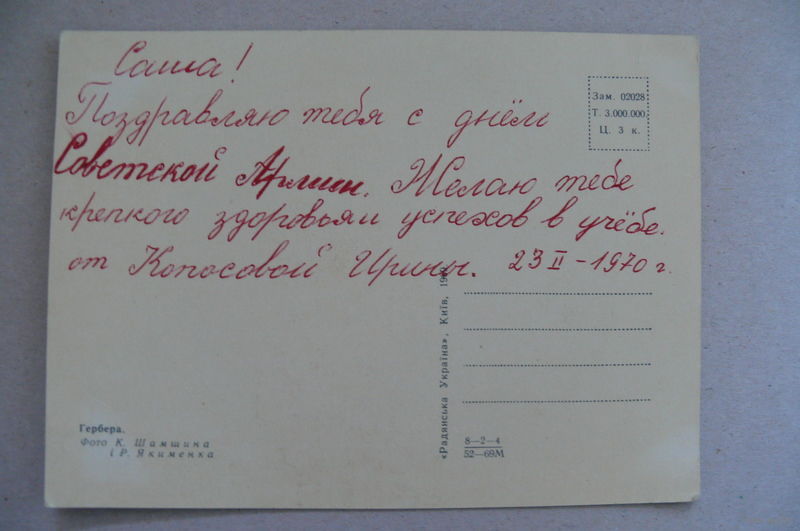 Саша!
Поздравляю тебя с днём
Советской Армии. Желаю тебе
крепкого здоровья и успехов в учёбе.
от Копосовой Ирины. 23 II - 1970 г.
Зам. 02028
Т. 3.000.000
Ц. 3 к.
«Радянська Україна», Київ,
8—2—4
52—69М
Гербера.
Фото К. Шамшина
і Р. Якименка